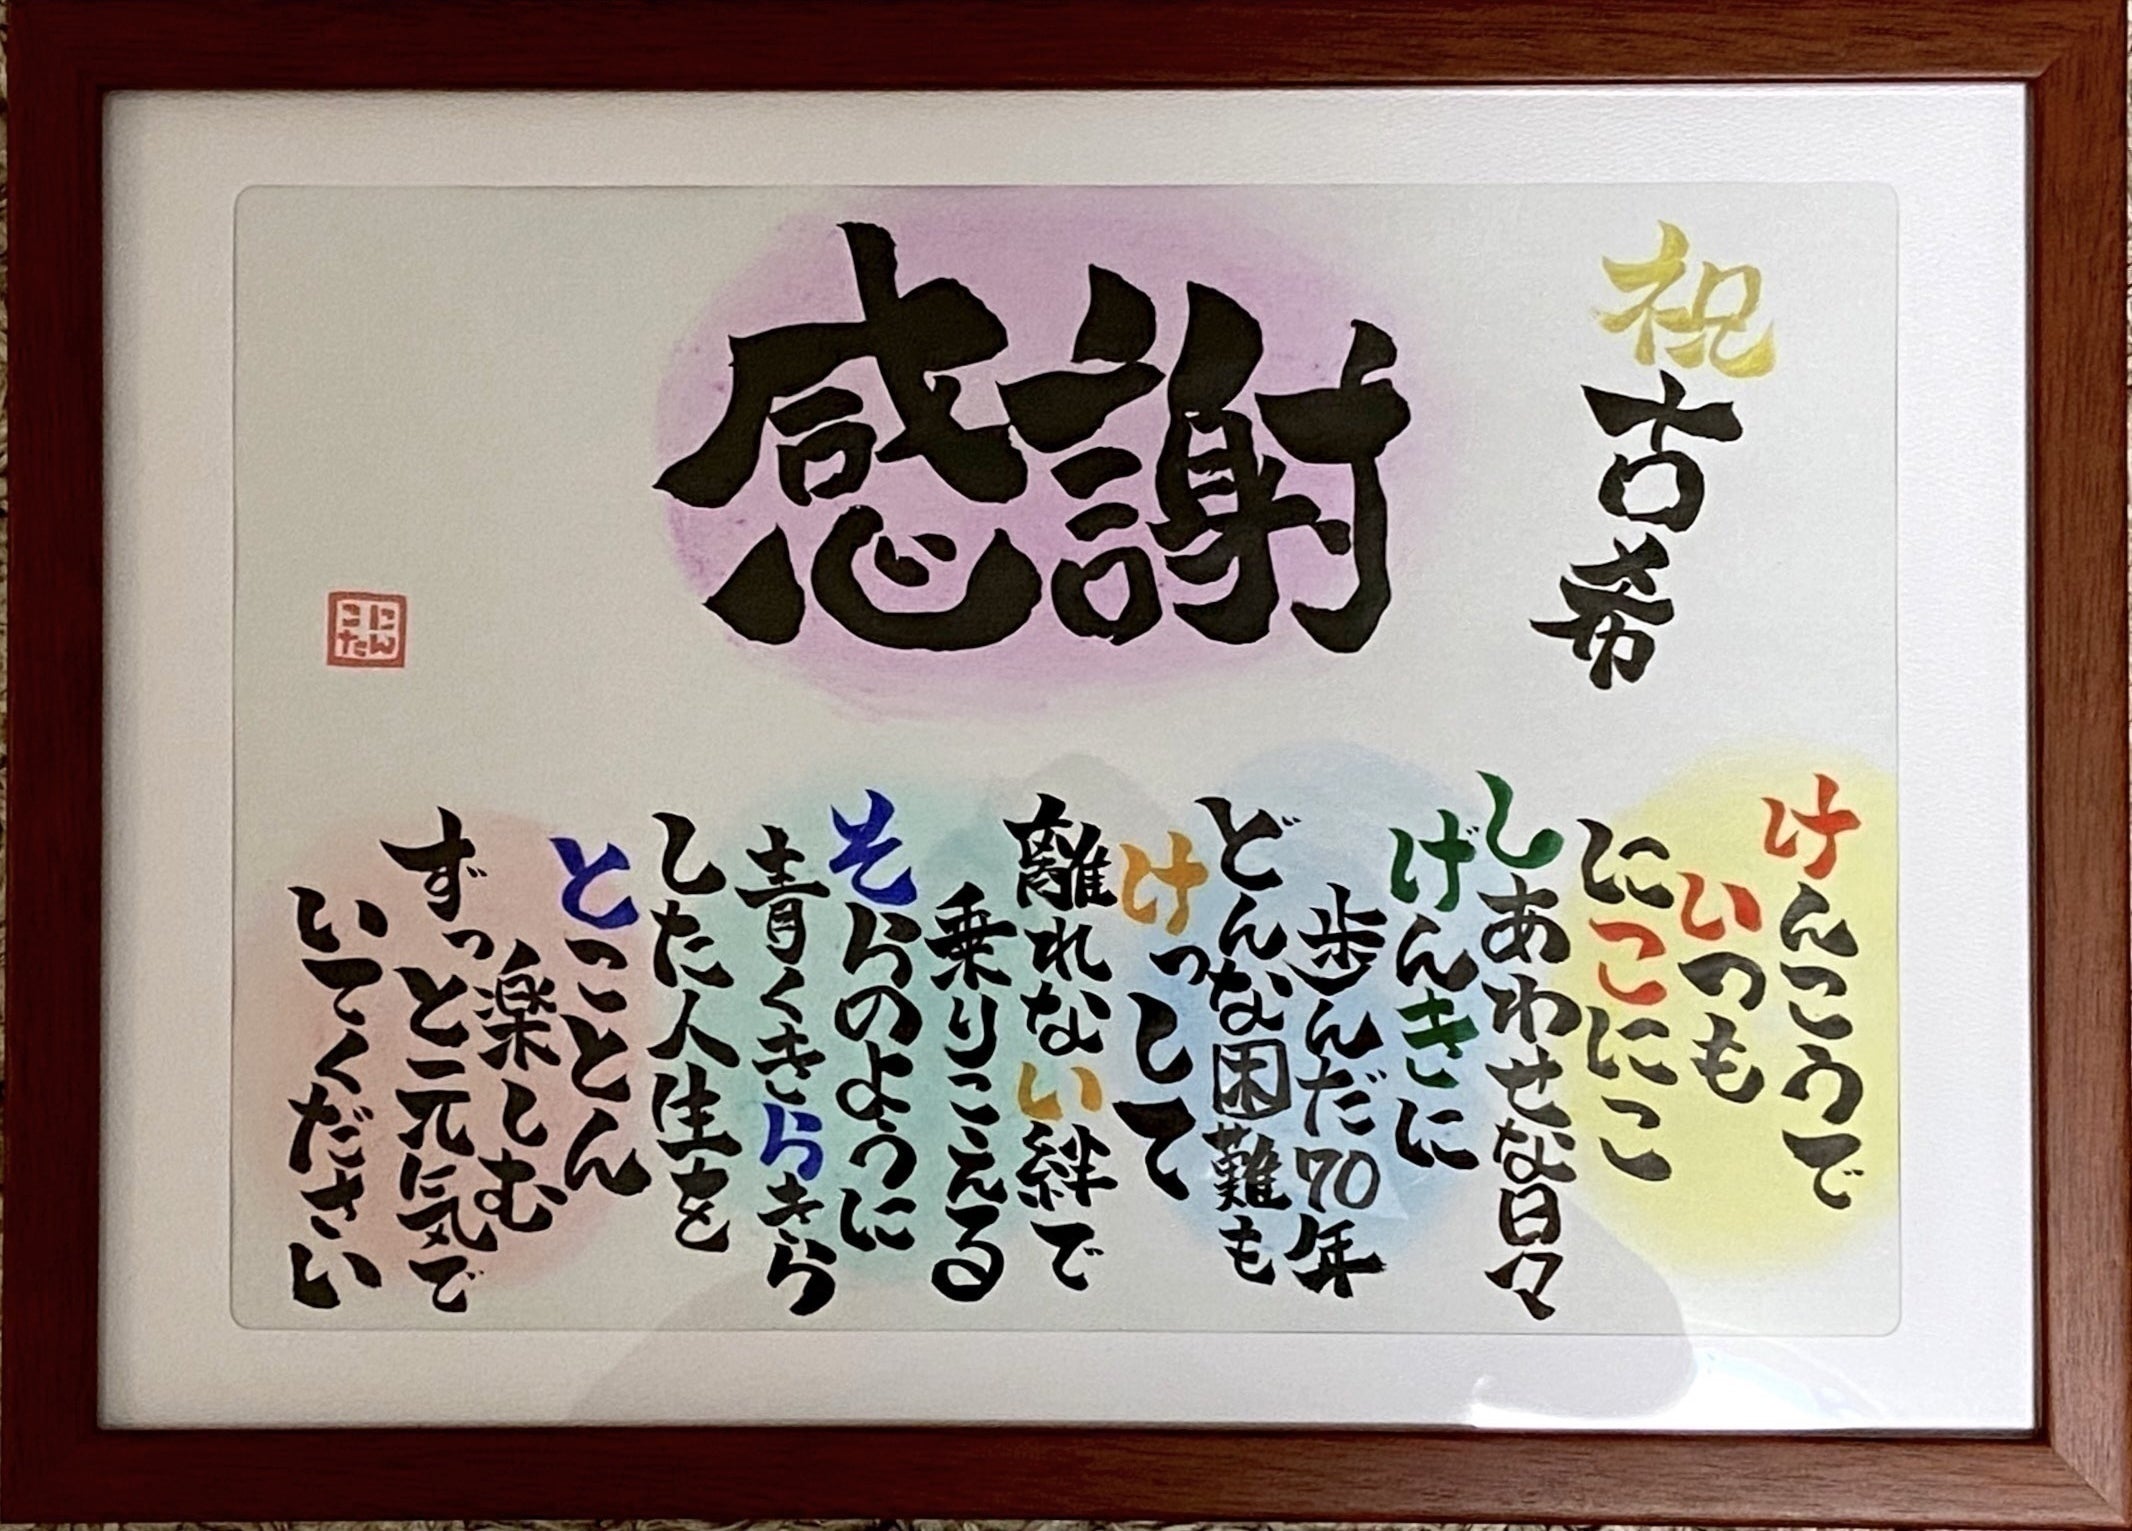 祝古希
感謝
けんこうで
いつも
にこにこ
しあわせな日々
げんきに
歩んだ70年
どんな困難も
けっして
離れない絆で
乗りこえる
そらのように
青くきらきら
した人生を
とことん
楽しむ
ずっと元気で
いてください
にんこた